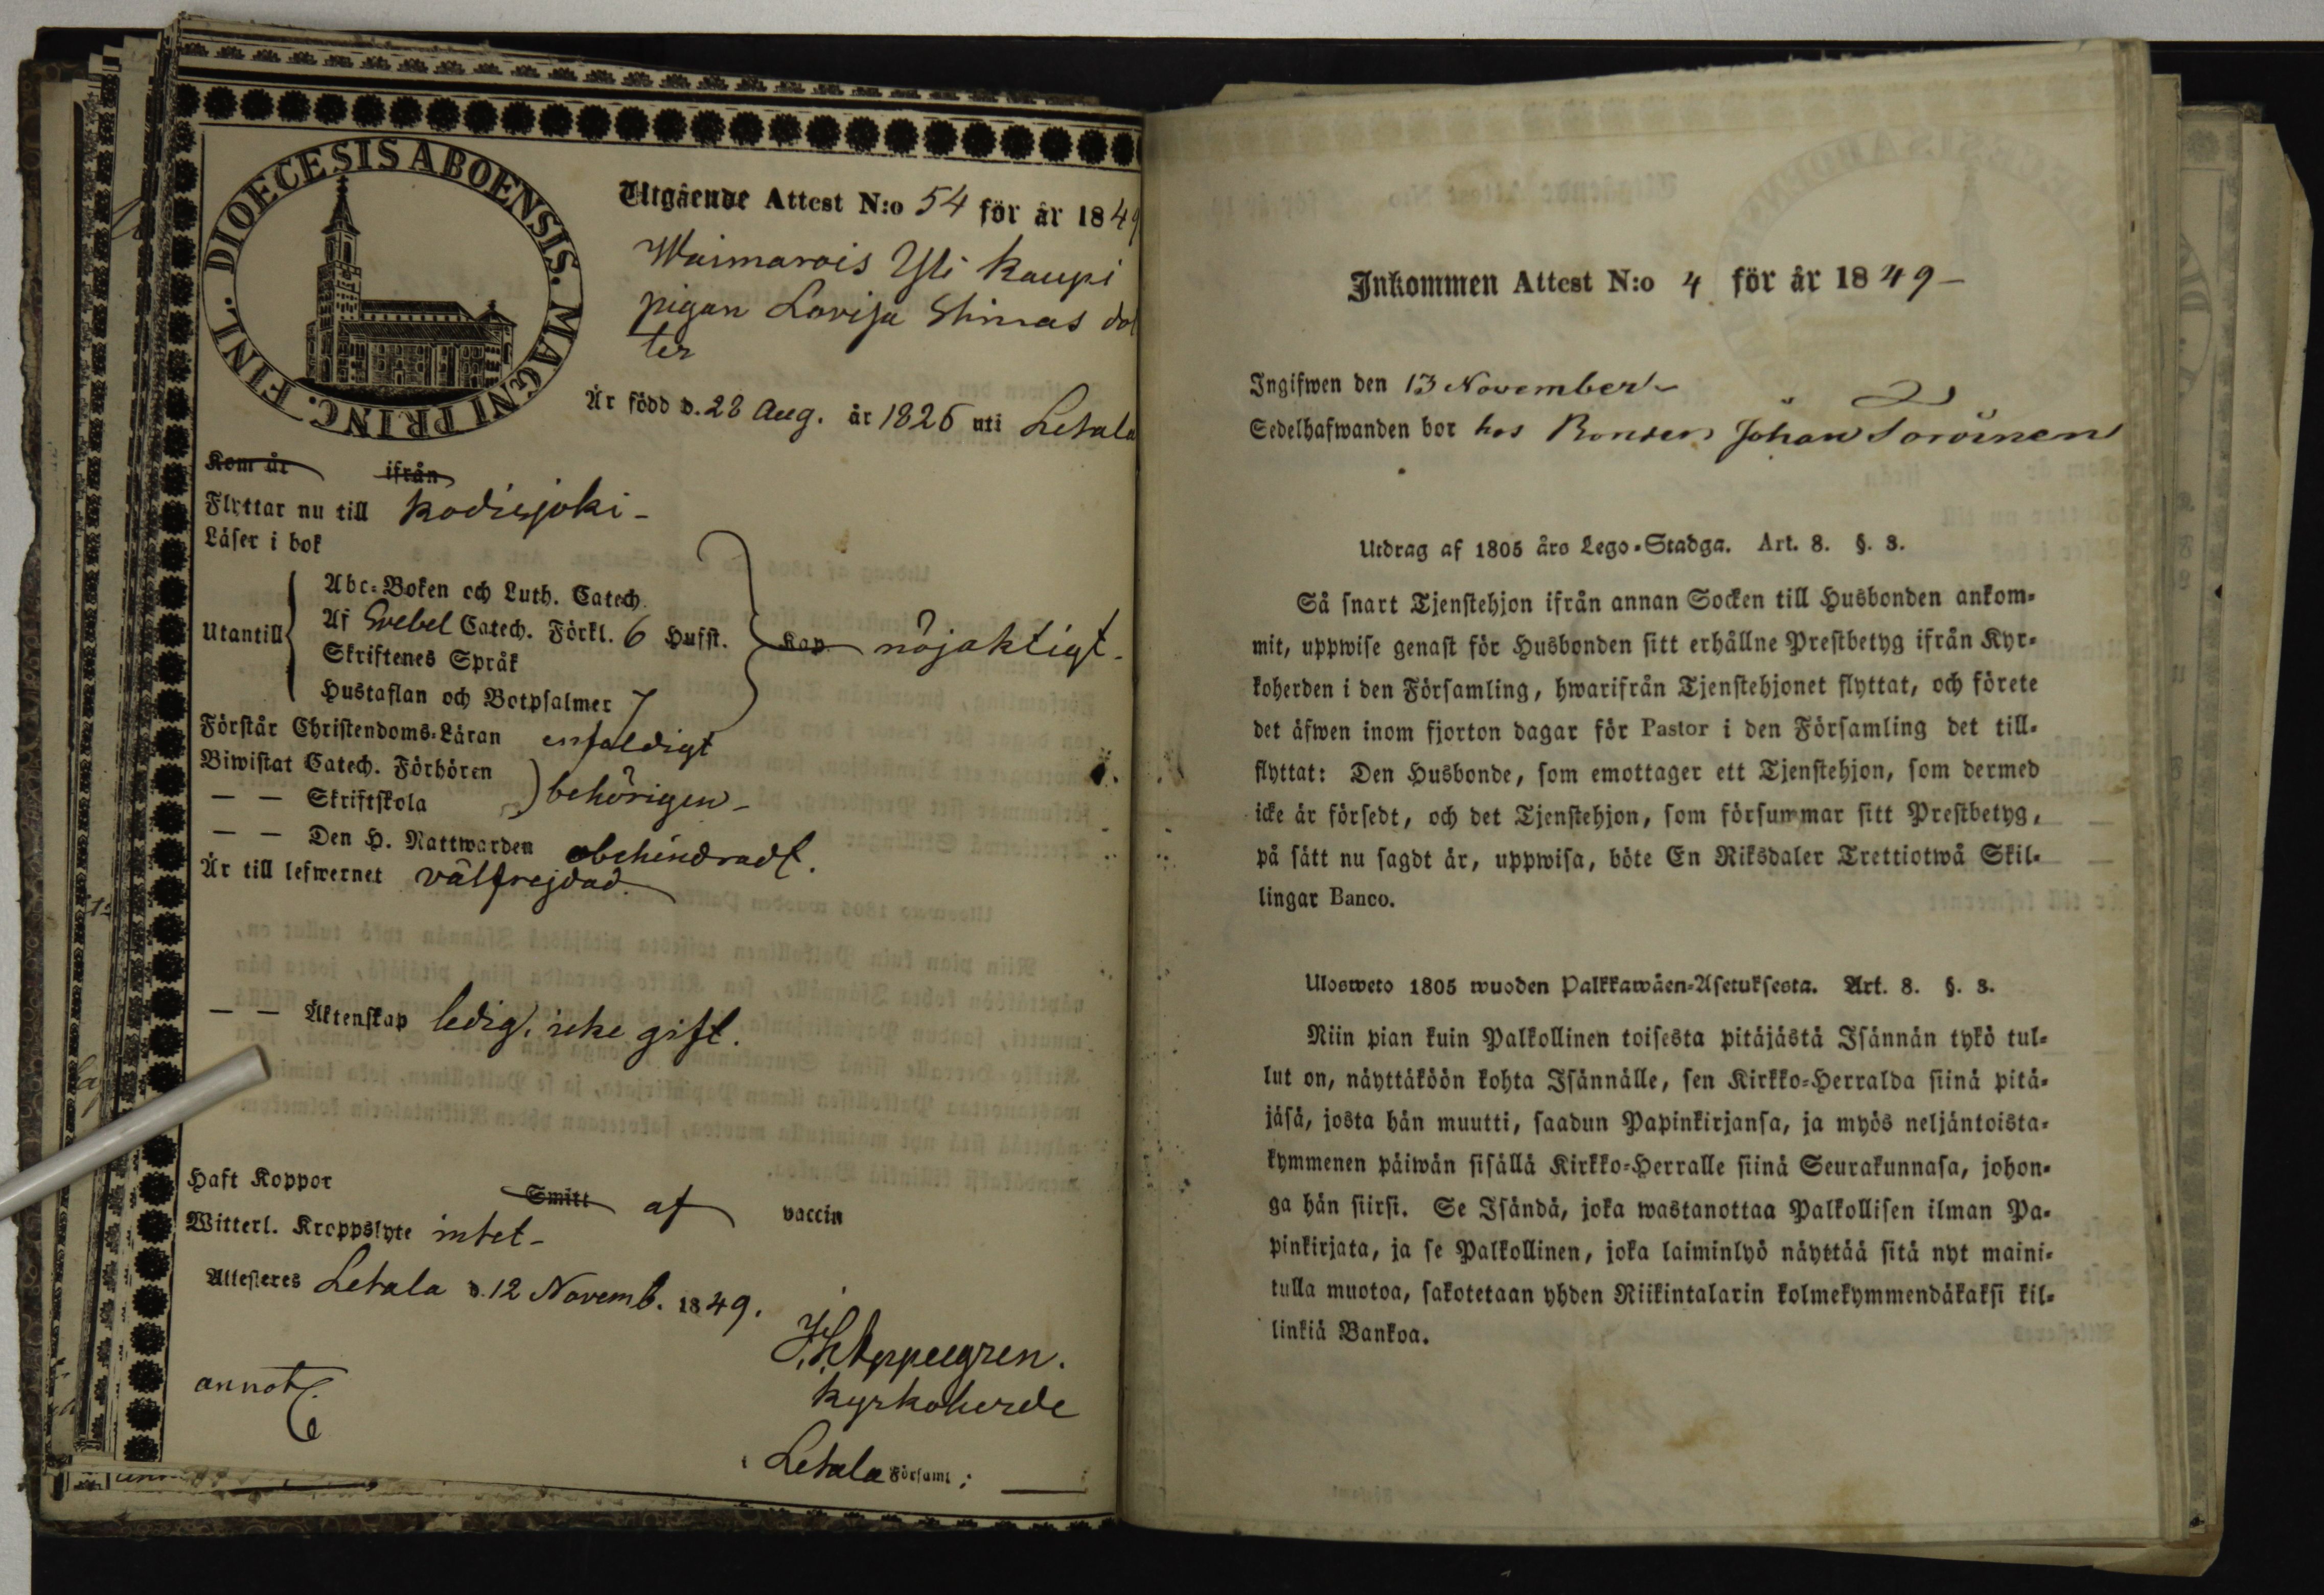 DIOECESIS ABOENSIS. MAGNI PRINC. FINL.
Utgående Attest N:o 54 för år 1849
Waimarois Yli Kaupi
pigan Lovisa Simas dot
ter
Är född d. 28 Aug. år 1826 uti Letala
Kom år ifrån
Flyttar nu till Kodisjoki -
Läser i bok
Utantill
Abc-Boken och Luth. Catech.
Af Svebel Catech. Förkl. 6 Hufst.
Kap nöjaktigt -
Skriftenes Språk
Hustaflan och Botpsalmer 7
Förstår Christendoms-Läran enfaldigt
Biwistat Catech. Förhören
— — Skriftskola
behörigen -
— — Den H. Nattwarden obehindradt.
Är till lefwernet välfrejdad.
— — Äktenskap ledig, icke gift.
Haft Koppor Smitt af vaccin
Witterl. Kroppslyte intet -
Attesteres Letala d. 12 Novemb. 1849.
Appelgren.
Kyrkoherde
annot.
i Letala Församl:
Inkommen Attest N:o 4 för år 1849 -
Ingifwen den 13 November
Sedelhafwanden bor hos Bonden Johan Toroinen
Utdrag af 1805 års Lego-Stadga. Art. 8. §. 8.
Så snart Tjenstehjon ifrån annan Socken till Husbonden ankom-
mit, uppwise genast för Husbonden sitt erhållne Prestbetyg ifrån Kyr-
koherden i den Församling, hwarifrån Tjenstehjonet flyttat, och förete
det äfwen inom fjorton dagar för Pastor i den Församling det till-
flyttat: Den Husbonde, som emottager ett Tjenstehjon, som dermed
icke är försedt, och det Tjenstehjon, som försummar sitt Prestbetyg,
på sätt nu sagdt är, uppwisa, böte En Riksdaler Trettiotwå Skil-
lingar Banco.
Ulosweto 1805 wuoden Palkkawäen-Asetuksesta. Art. 8. §. 8.
Niin pian kuin Palkollinen toisesta pitäjästä Isännän tykö tul-
lut on, näyttäköön kohta Isännälle, sen Kirkko-Herralda siinä pitä-
jäsä, josta hän muutti, saadun Papinkirjansa, ja myös neljäntoista-
kymmenen päiwän sisällä Kirkko-Herralle siinä Seurakunnasa, johon-
ga hän siirsi. Se Isändä, joka wastanottaa Palkollisen ilman Pa-
pinkirjata, ja se Palkollinen, joka laiminlyö näyttää sitä nyt maini-
tulla muotoa, sakotetaan yhden Riikintalarin kolmekymmendäkaksi kil-
linkiä Bankoa.